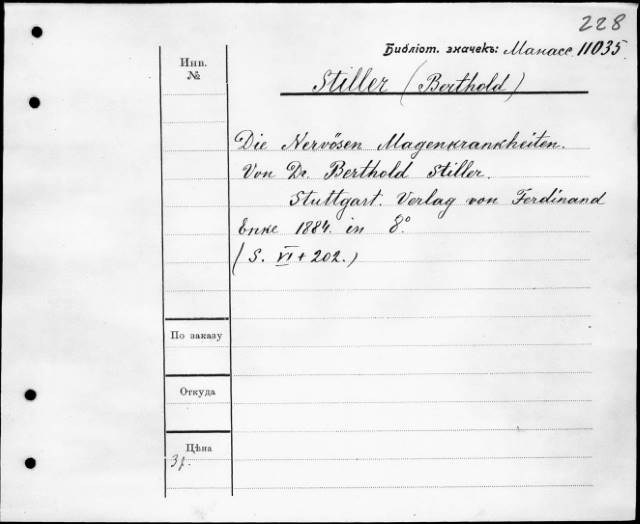 228
Библіот. значекъ: Манасс. 11035
Инв.
№
Stiller (Berthold)
Die Nervösen Magenkrankheiten.
Von Dr. Berthold Stiller.
Stuttgart. Verlag von Ferdinand
Enke 1884. in 8°.
(S. VI + 202.)
По заказу
Откуда
Цѣна
3 р.